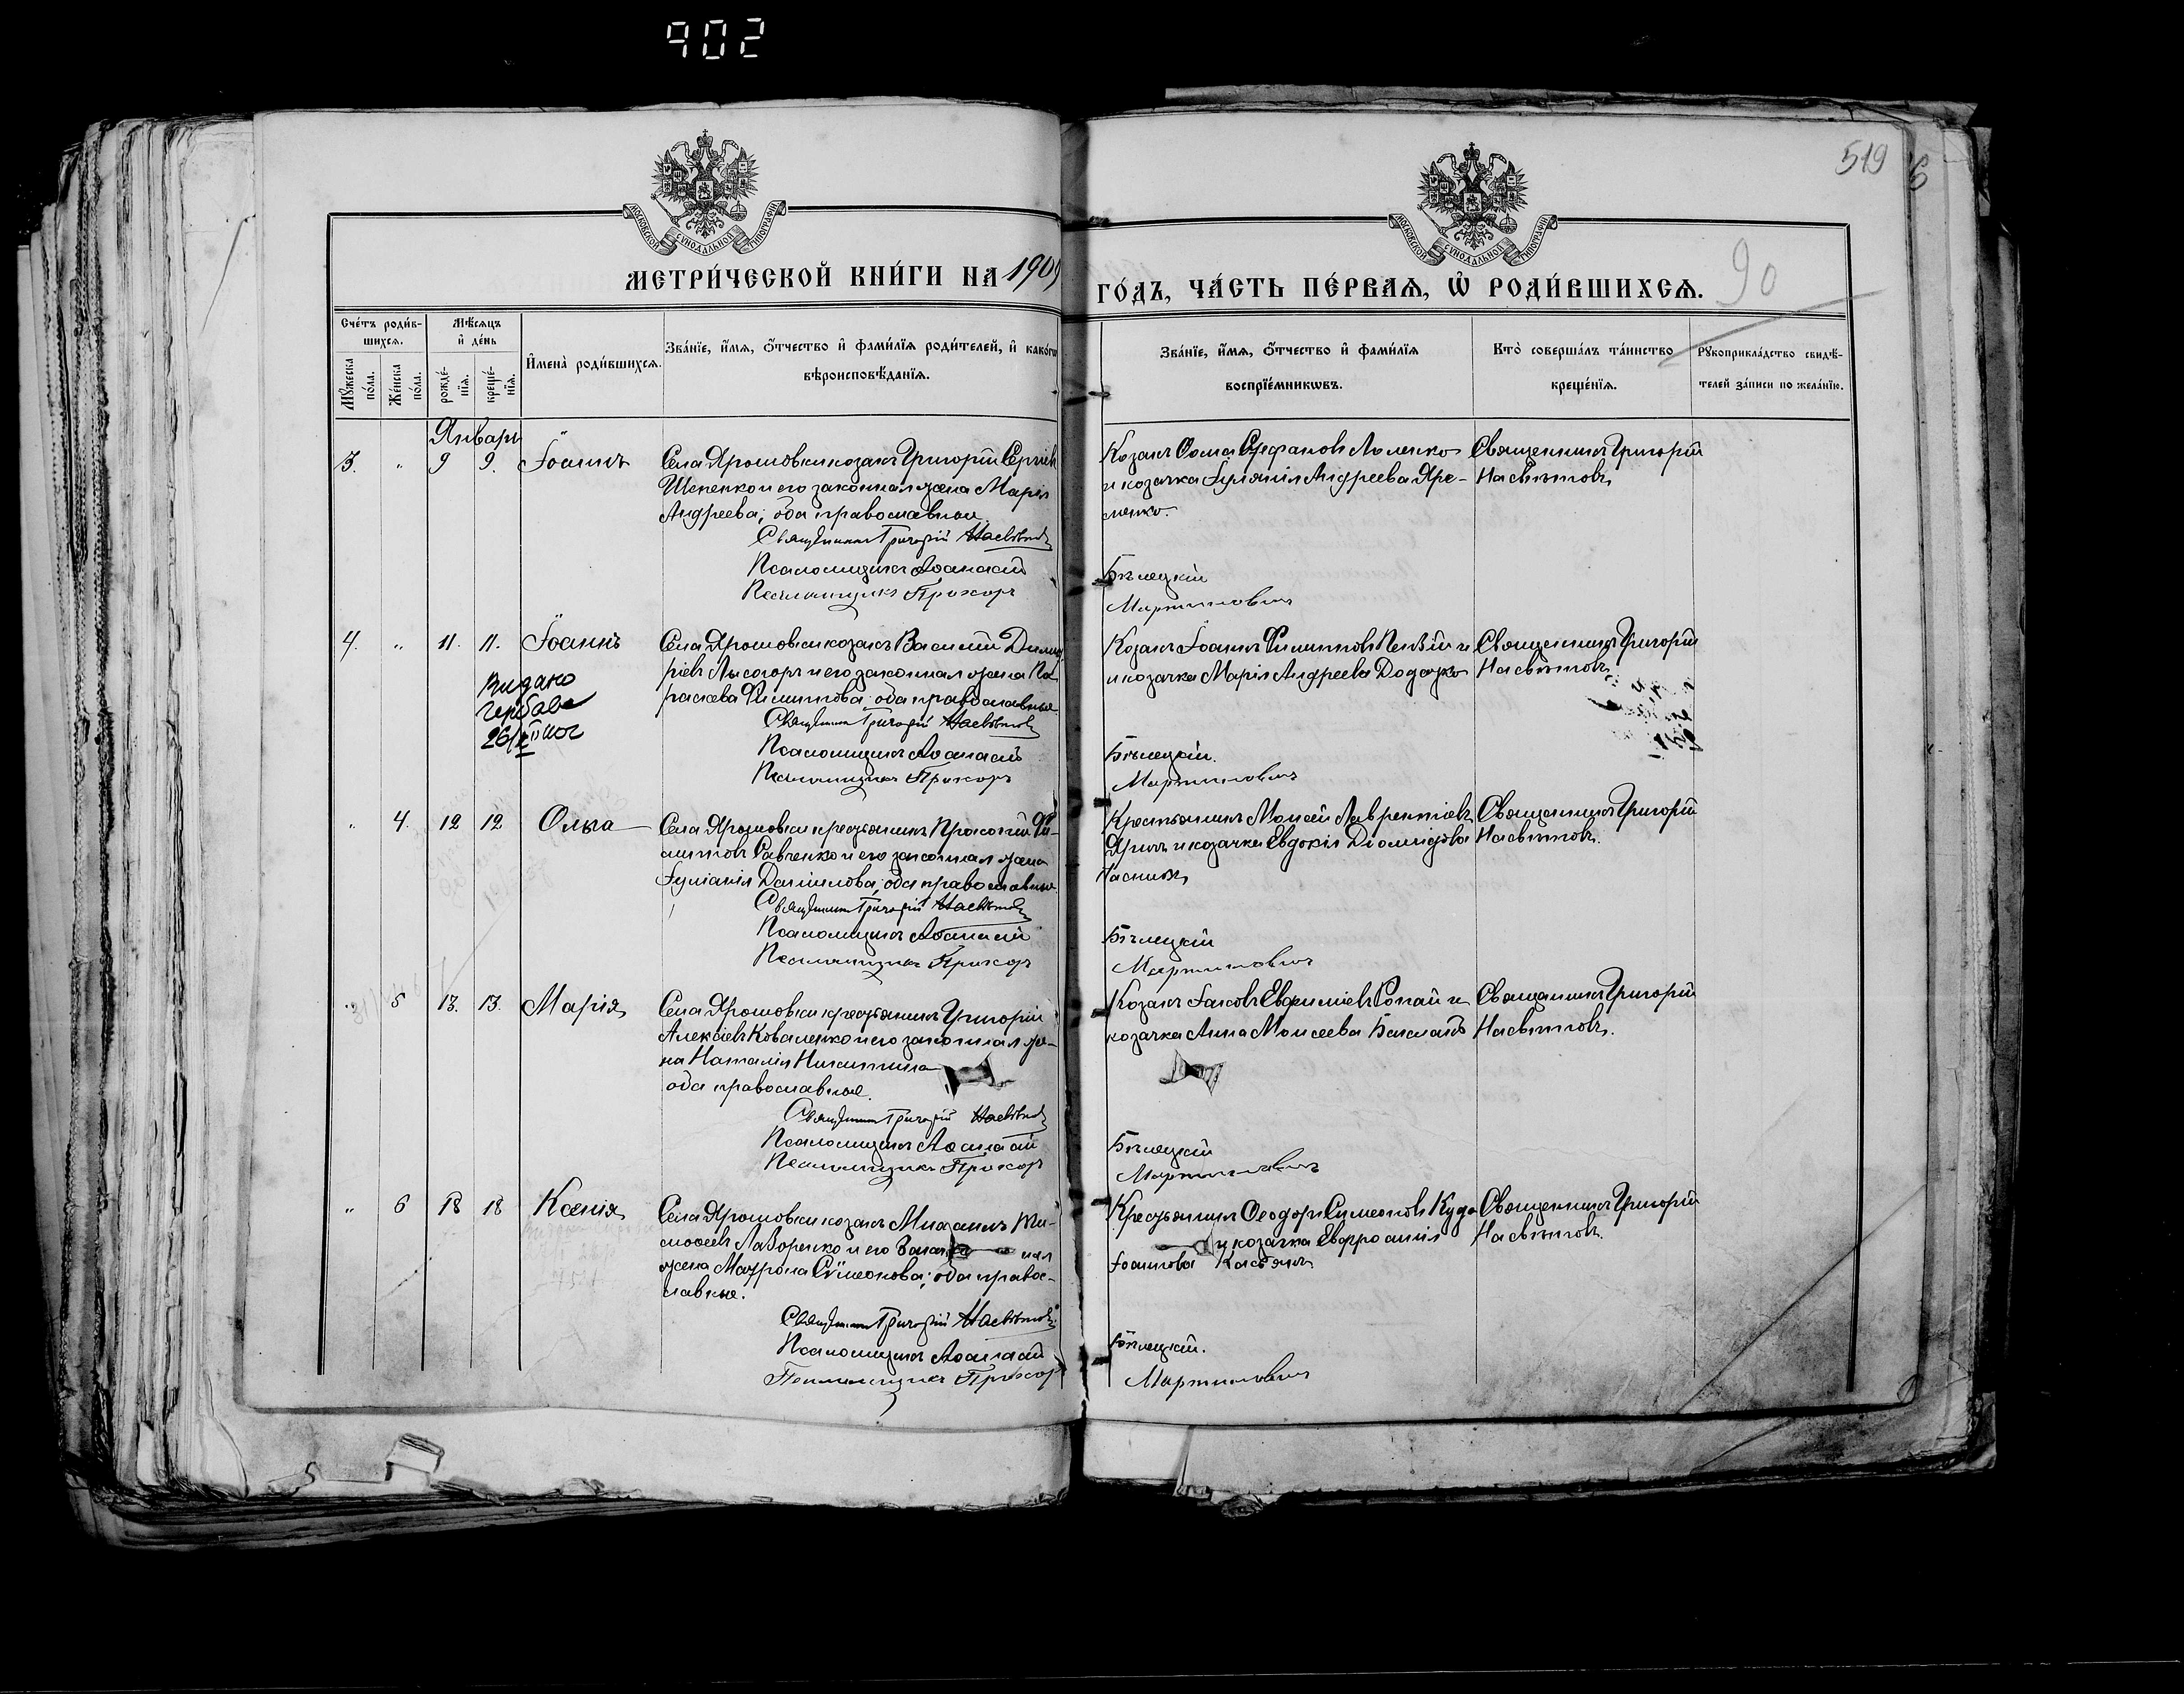 902
519
90
МОСКОВСКОЙ СУНОДАЛЬНОЙ ТИПОГРАФІИ
МОСКОВСКОЙ СУНОДАЛЬНОЙ ТИПОГРАФІИ
МЕТРИ́ЧЕСКОЙ КНИ́ГИ НА 1909
ГО́ДЪ, ЧА́СТЬ ПЕ́РВАѦ, Ѡ РОДИ́ВШИХСѦ.
Сче́тъ роди́в-
шихсѧ.
Мꙋжеска по́ла.
Же́нска по́ла.
Мѣ́сѧцъ
и҆ де́нь
рожде́-
нїѧ.
креще́-
нїѧ.
И҆мена̀ роди́вшихсѧ.
Зва́нїе, и҆́мѧ, ѻ҆́тчество и҆ фами́лїѧ роди́телей, и҆ како́гѡ
вѣроисповѣ́данїѧ.
Зва́нїе, и҆́мѧ, ѻ҆́тчество и҆ фами́лїѧ
воспрїе́мникѡвъ.
Кто̀ соверша́лъ та́инство
креще́нїѧ.
Рꙋкоприкла́дство свидѣ́-
телей за́писи по жела́нїю.
Январь
3. " 9 9. Іоаннъ
Села Ярошовки козакъ Григорій Сергіевъ
и его законная жена Марія
Андреева; оба православные
Священникъ Григорій Насвѣтовъ
Псаломщикъ Аѳанасій
Псаломщикъ Прохоръ
Козакъ Ѳома Стефановъ
и козачка Іуліанія Андреева Яре-
менко.
Бѣлецкій
Мартиновичъ
Священникъ Григорій
Насвѣтовъ
4. " 11. 11. Іоаннъ
Видано
26/II
Села Ярошовки козакъ Василій Дими
ріевъ Лысогоръ и его законная жена Па
раскева Филиппова; оба православные.
Священникъ Григорій Насвѣтовъ
Псаломщикъ Аѳанасій
Псаломщикъ Прохоръ
Козакъ Іоаннъ Филипповъ
и козачка Марія Андреева
Бѣлецкій.
Мартиновичъ
Священникъ Григорій
Насвѣтовъ
" 4. 12 12 Ольга
Села Ярошовки крестьянинъ Прокопій Фи-
липповъ Савченко и его законная жена
Іуліанія Даніилова; оба православные.
Священникъ Григорій Насвѣтовъ
Псаломщикъ Аѳанасій
Псаломщикъ Прохоръ
Крестьянинъ Моисей Лаврентіевъ
и козачка Евдокія Діомидова
Бѣлецкій
Мартиновичъ
Священникъ Григорій
Насвѣтовъ.
" 5 13. 13. Марія
Села Ярошовки крестьянинъ Григорій
Алексіевъ Коваленко и его законная же-
на Наталія Никитина
оба православные.
Священникъ Григорій Насвѣтовъ
Псаломщикъ Аѳанасій
Псаломщикъ Прохоръ
Козакъ Іаковъ Евфиміевъ и
козачка Анна Моисеева
Бѣлецкій
Мартиновичъ
Священникъ Григорій
Насвѣтовъ.
" 6 18 18 Ксенія
Села Ярошовки козакъ Михаилъ Ти-
моѳеевъ Лазоренко и его закон ная
жена Матрона Сѵмеонова; оба право-
славные.
Священникъ Григорій Насвѣтовъ
Псаломщикъ Аѳанасій
Псаломщикъ Прохоръ
Крестьянинъ Ѳеодоръ Симеоновъ
и козачка Евфросинія
Іоаннова Касьянъ
Бѣлецкій.
Мартиновичъ
Священникъ Григорій
Насвѣтовъ.